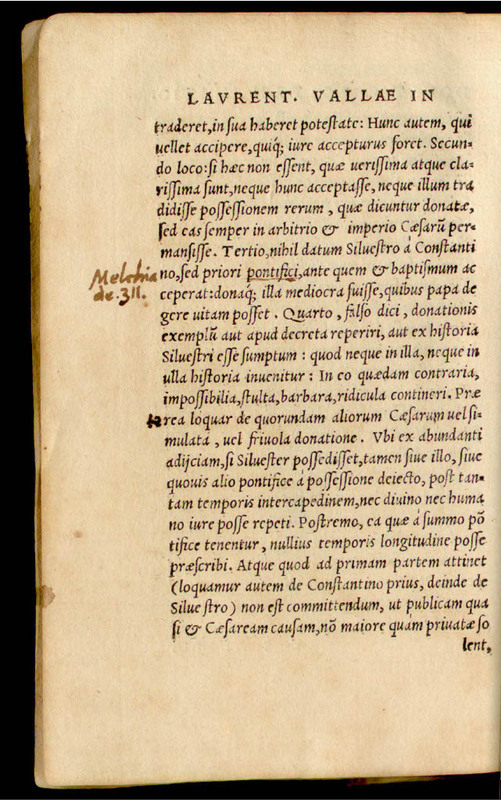 LAVRENT. VALLAE IN
traderet, in sua haberet potestate: Hunc autem, qui
uellet accipere, quiq; iure accepturus foret. Secun-
do loco: si hæc non essent, quæ uerissima atque cla-
rissima sunt, neque hunc acceptasse, neque illum tra
didisse possessionem rerum, quæ dicuntur donatæ,
sed eas semper in arbitrio & imperio Cæsarũ per-
mansisse. Tertio, nihil datum Siluestro à Constanti
Melchia
de. 311.
no, sed priori pontifici, ante quem & baptismum ac
ceperat: donaq; illa mediocra fuisse, quibus papa de
gere uitam posset. Quarto, falso dici, donationis
exemplũ aut apud decreta reperiri, aut ex historia
Siluestri esse sumptum: quod neque in illa, neque in
ulla historia inuenitur: In eo quædam contraria,
impossibilia, stulta, barbara, ridicula contineri. Præ
terea loquar de quorundam aliorum Cæsarum uel si-
mulata, uel friuola donatione. Vbi ex abundanti
adijciam, si Siluester possedisset, tamen siue illo, siue
quouis alio pontifice à possessione deiecto, post tan-
tam temporis intercapedinem, nec diuino nec huma
no iure posse repeti. Postremo, ea quæ à summo põ
tifice tenentur, nullius temporis longitudine posse
præscribi. Atque quod ad primam partem attinet
(loquamur autem de Constantino prius, deinde de
Siluestro) non est committendum, ut publicam qua
si & Cæsaream causam, nõ maiore quàm priuatæ so
lent,